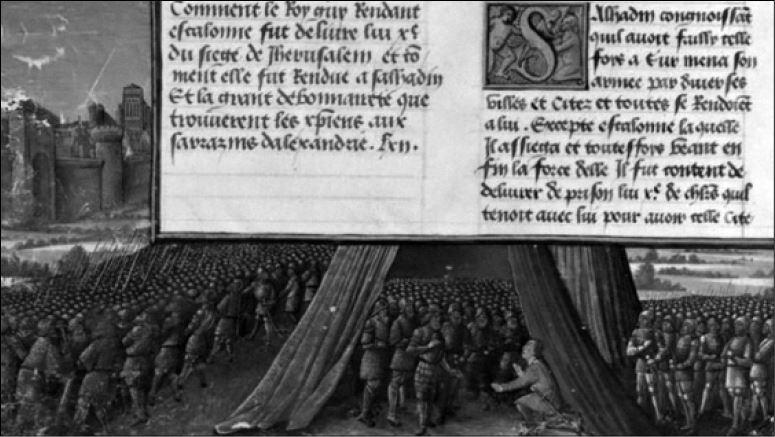 Comment le Roy guy Rendant
escalonne fut deliure lui x.e
du siege de Jherusalem et cõ
ment elle fut Rendue a salhadin
Et la grant debonnairete que
trouuerent les xp̃iens aux
sarrazins dalexandrie.
Salhadin congnoissãt
quil auoit failly celle
fois a Sur mena son
armee par diuerses
villes et Citez et toutes se Rendoiẽt
a lui. Excepte escalonne laquelle
Il assiega et touteffois veant en
fin la force delle Il fut content de
deliurer de prison lui x.e de chlr̃s quil
tenoit auec lui pour auoir celle Cite